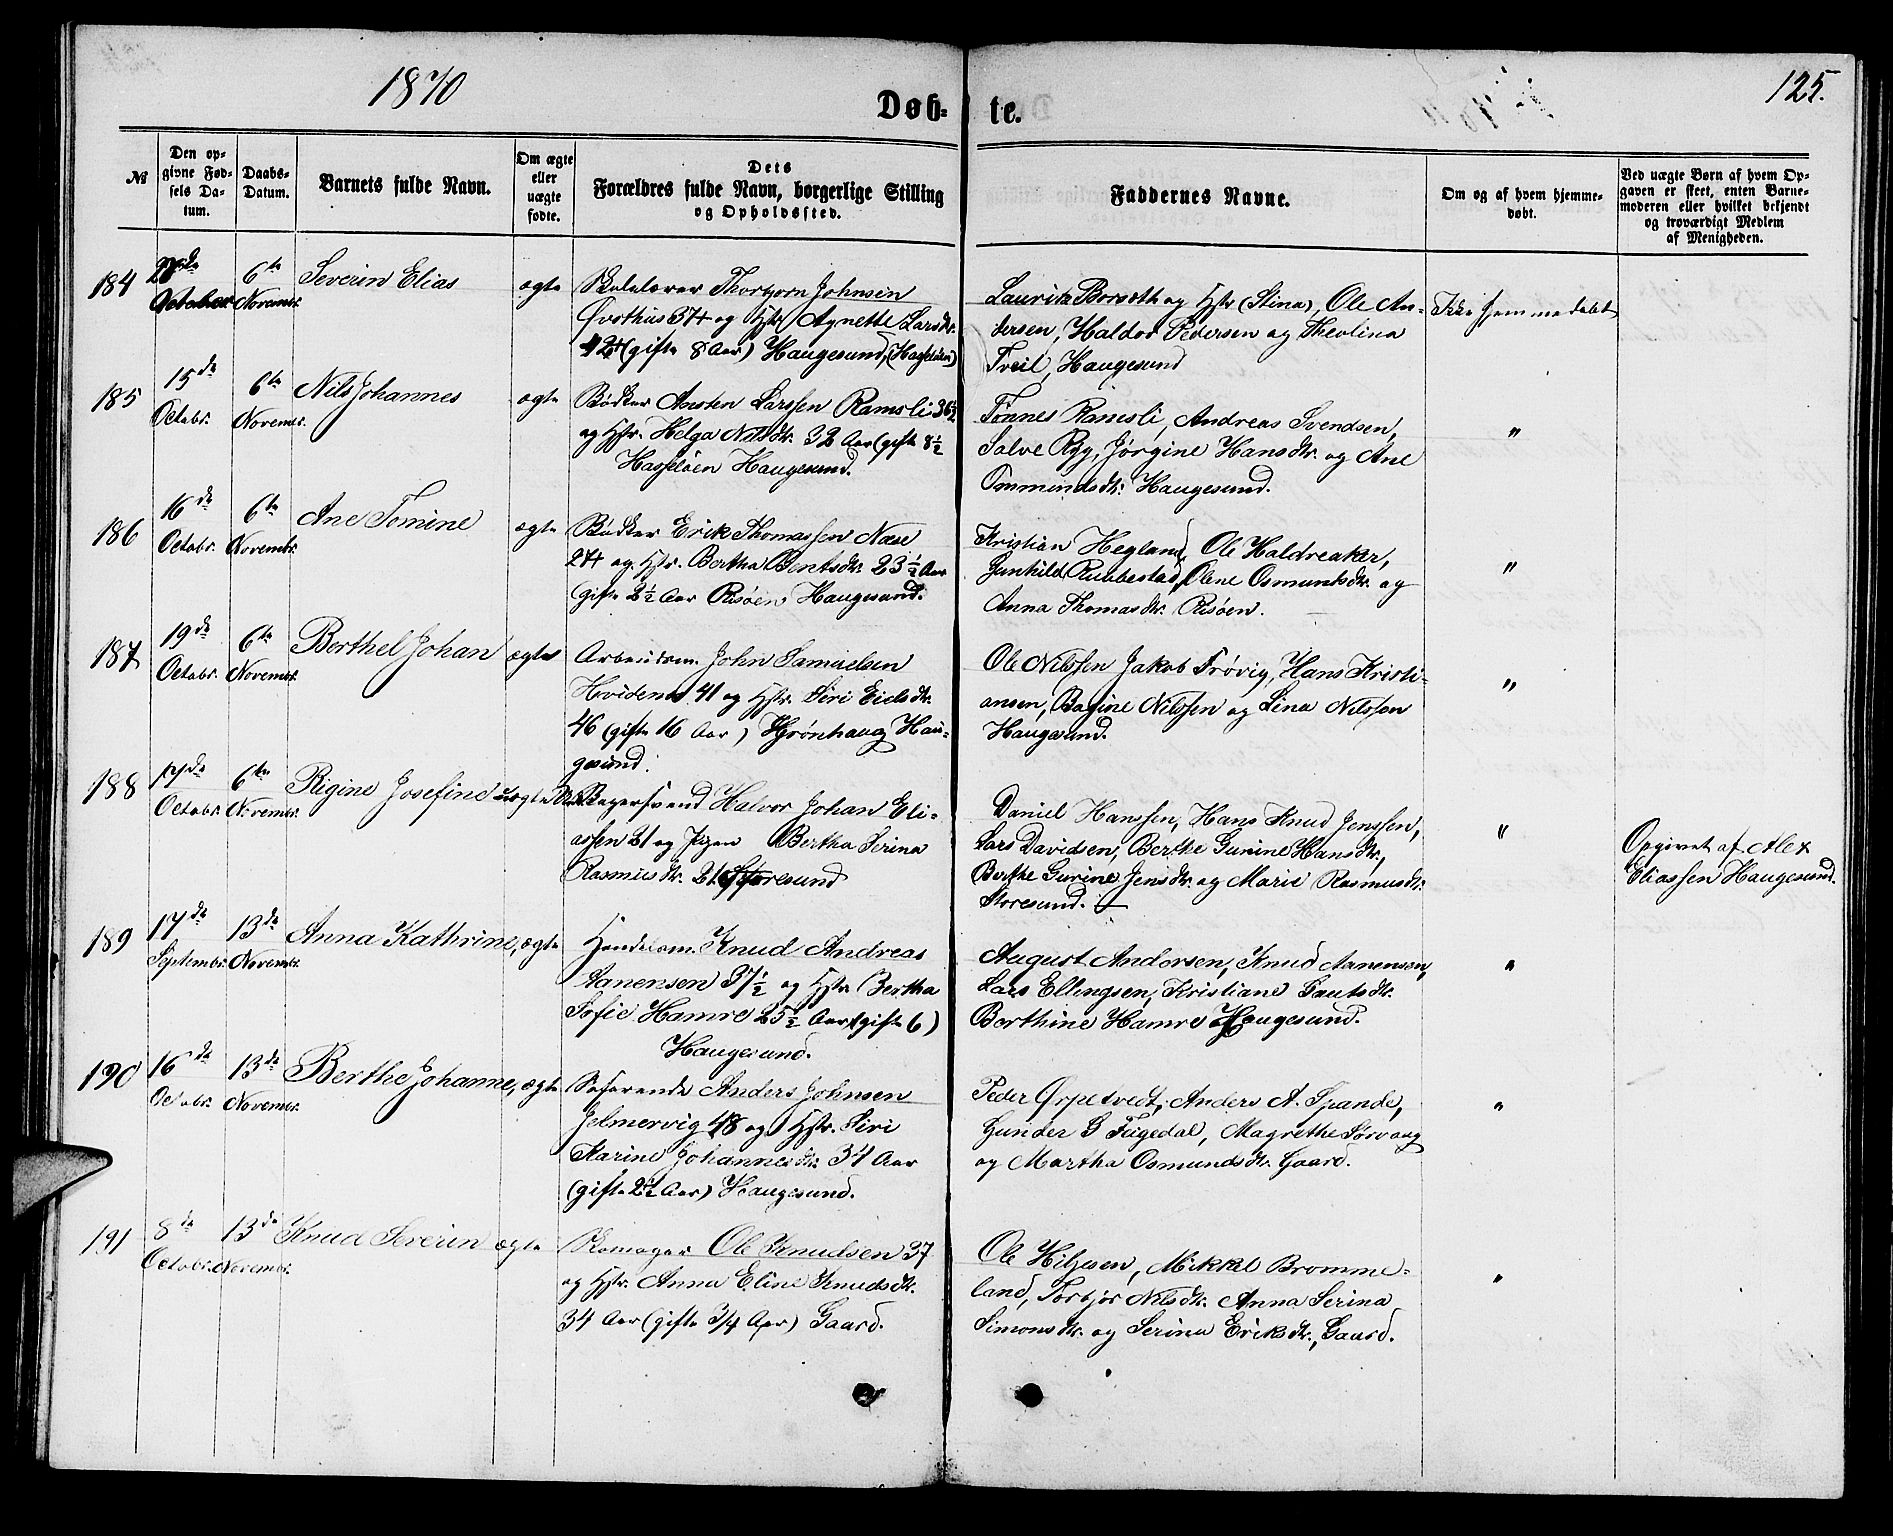 1870
125.
Døb-
te.
No
Den op-
givne Fød-
sels Da-
tum.
Daabs-
Datum.
Barnets fulde Navn.
Om ægte
eller
uægte
fødte.
Dets
Forældres fulde Navn, borgerlige Stilling
og Opholdssted.
Faddernes Navne.
Om og af hvem hjemme-
døbt.
Ved uægte Børn af hvem Op-
gaven er skeet, enten Barne-
moderen eller hvilket bekjendt
og troværdigt Medlem
af Menigheden.
184
October
6te
Novembr.
Severin Elias
ægte
Skolelærer Thorbjørn Johnsen
Øvsthus 37 og Hstr. Agnette Larsdtr.
42 (gifte 8 Aar) Haugesund, (Hasseløen)
Lauritz Borsøth og Hstr (Stina), Ole An-
dersen, Haldor Pedersen og Theolina
Tveit, Haugesund
Ikke hjemmedøbt
185
15de
Octobr.
6te
Novembr.
Nils Johannes
ægte
Bødker Austen Larssen Ramsli 36½
og Hstr. Helga Nilsdtr. 32 Aar (gift 8½
Hasseløen Haugesund.
Tønnes Ramsli, Andreas Svendsen,
Salve Ryg, Jørgine Hansdtr. og Ane
Ommundsdtr. Haugesund.
"
186
16de
Octobr.
6te
Novembr.
Ane Tomine
ægte
Bødker Erik Thomassen Næse
27 og Hstr. Bertha Bentsdtr. 23½ Aar
(gifte 2½ Aar Risøen Haugesund.
Kristian Hegland, Ole Haldreaker,
Gunhild Rubbestad, Olene Osmundsdtr. og
Anna Thomasdtr. Risøen.
"
187
19de
Octobr.
6te
Novembr.
Berthel Johan
ægte
Arbeidsm. John Samuelsen
Hvidenes 41 og Hstr. Siri Eielsdtr.
46 (gifte 16 Aar) Grønhaug Hau-
gesund.
Ole Nilssen Jakob Frøvig, Hans Kristi-
ansen, Bagine Nilssen og Lina Nilssen
Haugesund.
"
188
Octobr.
6te
Novembr.
Rigine Josefine
uægte
Bagersvend Halvor Johan Eli-
assen 21 og Pigen Bertha Serina
Rasmusdtr. 21 Storesund
Daniel Hanssen, Hans Knud Jenssen,
Lars Davidsen, Berthe Gurine Hansdtr.,
Berthe Gurine Jensdtr. og Marie Rasmusdtr.
Storesund.
"
Opgivet af Alex
Eliassen Haugesund.
189
17de
Septembr.
13de
Novembr.
Anna Kathrine,
ægte
Handelsm. Knud Andreas
Aanensen 37½ og Hstr. Bertha
Sofie Hamre 25½ Aar (gifte 6)
Haugesund.
August Andersen, Knud Aanensen,
Lars Ellingsen, Kristiane Gautsdtr.
Berthine Hamre Haugesund.
"
190
16de
Octobr.
13de
Novembr.
Berthe Johanne,
ægte
Søfarende Anders Johnsen
Jelmervig 48 og Hstr. Siri
Karine Johannesdtr. 34 Aar
(gifte 2½ Aar) Haugesund.
Peder Ørpetvedt, Anders A. Spande,
Gunder G Fagedal, Magrethe Sørvaag
og Martha Osmundsdtr. Gaard.
"
191
8de
Octobr.
13de
Novembr.
Knud Severin
ægte
Skomager Ole Knudsen 37
og Hstr. Anna Eline Knudsdtr.
34 Aar (gifte 3/4 Aar) Gaard.
Ole Hiljesen, Mikkel Bromme-
land, Torbjør Nilsdtr. Anna Serina
Simonsdtr. og Serina Eriksdtr., Gaard.
"